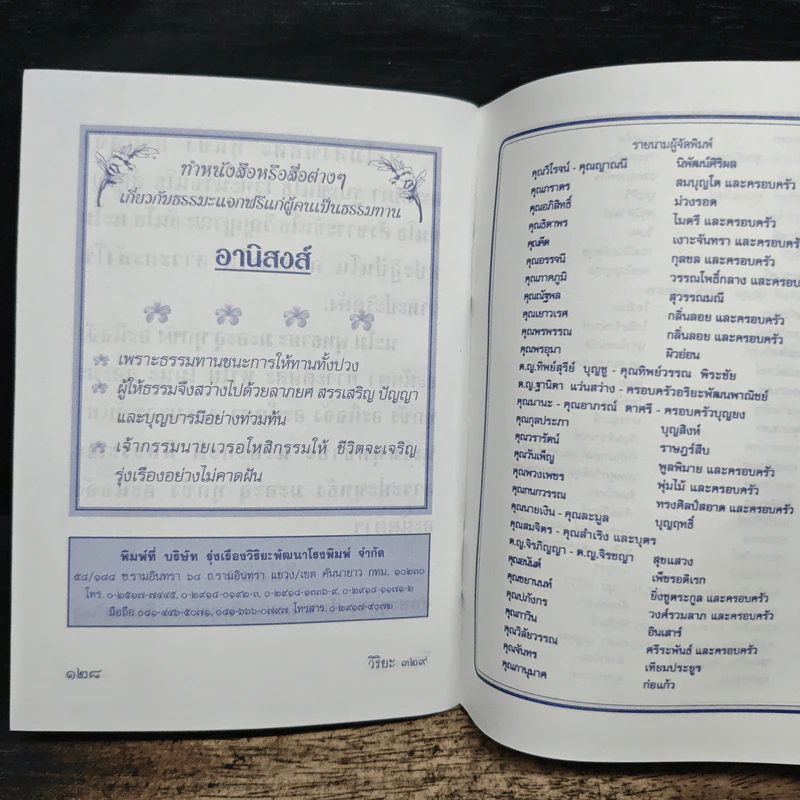 ทำหนังสือหรือสื่อต่างๆ
เกี่ยวกับธรรมะแจกฟรีแก่ผู้คนเป็นธรรมทาน
อานิสงส์
เพราะธรรมทานชนะการให้ทานทั้งปวง
ผู้ให้ธรรมจึงสว่างไปด้วยลาภยศ สรรเสริญ ปัญญา
และบุญบารมีอย่างท่วมท้น
เจ้ากรรมนายเวรอโหสิกรรมให้ ชีวิตจะเจริญ
รุ่งเรืองอย่างไม่คาดฝัน
พิมพ์ที่ บริษัท รุ่งเรืองวิริยะพัฒนาโรงพิมพ์ จำกัด
๕๘/๑๘๘ ซ.รามอินทรา ๖๘ ถ.รามอินทรา แขวง/เขต คันนายาว กทม. ๑๐๒๓๐
โทร. ๐-๒๕๑๗-๗๔๔๕, ๐-๒๙๑๘-๐๑๙๒-๓, ๐-๒๙๑๘-๑๓๓๖-๙, ๐-๒๙๑๘-๑๑๗๑-๒
มือถือ ๐๘๑-๔๔๖-๕๐๗๑, ๐๘๑-๖๖๖-๐๗๙๗ โทรสาร. ๐-๒๙๑๗-๙๐๗๒
๑๒๘
วิริยะ ๓๒๙
รายนามผู้จัดพิมพ์
คุณวิโรจน์ - คุณญาณนี นิพัฒน์ศิริผล
คุณภราดร สมบุญโต และครอบครัว
คุณอภิสิทธิ์ ม่วงรอด
คุณธิดาพร ไมตรี และครอบครัว
คุณคิด เงาะจันทรา และครอบครัว
คุณอรรจนี กุลชล และครอบครัว
คุณภาคภูมิ วรรณโพธิ์กลาง และครอบ
คุณณัฐพล สุวรรณมณี
คุณเยาวเรศ กลิ่นลอย และครอบครัว
คุณพรพรรณ กลิ่นลอย และครอบครัว
คุณพรอุมา ผิวอ่อน
ด.ญ.ทิพย์สุรีย์ บุญชู - คุณทิพย์วรรณ พิระชัย
ด.ญ.ฐานิตา แว่นสว่าง - ครอบครัวอริยะพัฒนพาณิชย์
คุณมานะ - คุณอาภรณ์ ตาศรี - ครอบครัวบุญยง
คุณกุลประภา บุญสิงห์
คุณวรารัตน์ ราษฎร์สืบ
คุณวันเพ็ญ พูลพิมาย และครอบครัว
คุณพวงเพชร พุ่มไม้ และครอบครัว
คุณกนกวรรณ ทรงศิลป์สอาด และครอบครัว
คุณนายเงิน - คุณละมูล บุญฤทธิ์
คุณสมจิตร - คุณสำเริง และบุตร
ด.ญ.จิรภิญญา - ด.ญ.จิรชญา สุขแสวง
คุณอนันต์ เพ็ชรอดิเรก
คุณชยานนท์ ยิ่งชูตระกูล และครอบครัว
คุณปภังกร วงศ์รวมลาภ และครอบครัว
คุณภาวิน อินเสาร์
คุณวิลัยวรรณ ศรีระพันธ์ และครอบครัว
คุณจันทร เทียมประยูร
คุณภานุมาศ ก่อแก้ว